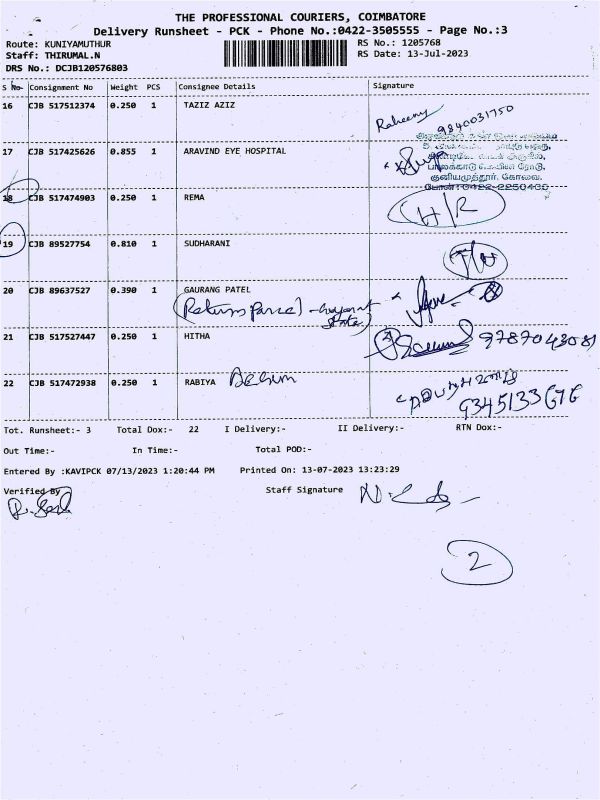 THE PROFESSIONAL COURIERS, COIMBATORE
Delivery Runsheet - PCK - Phone No.:0422-3505555 - Page No.:3
Route: KUNIYAMUTHUR RS No.: 1205768
Staff: THIRUMAL.N RS Date: 13-Jul-2023
DRS No.: DCJB120576803
S No- Consignment No Weight PCS Consignee Details Signature
16 CJB 517512374 0.250 1 TAZIZ AZIZ
9840031750
17 CJB 517425626 0.855 1 ARAVIND EYE HOSPITAL
பாலக்காடு மெயின் ரோடு,
குனியமுத்தூர், கோவை.
போன்: 0422-2250400
18 CJB 517474903 0.250 1 REMA H/R
19 CJB 89527754 0.810 1 SUDHARANI
20 CJB 89637527 0.390 1 GAURANG PATEL
21 CJB 517527447 0.250 1 HITHA 9787043081
22 CJB 517472938 0.250 1 RABIYA
9345133676
Tot. Runsheet:- 3 Total Dox:- 22 I Delivery:- II Delivery:- RTN Dox:-
Out Time:- In Time:- Total POD:-
Entered By :KAVIPCK 07/13/2023 1:20:44 PM Printed On: 13-07-2023 13:23:29
Verified By Staff Signature
2